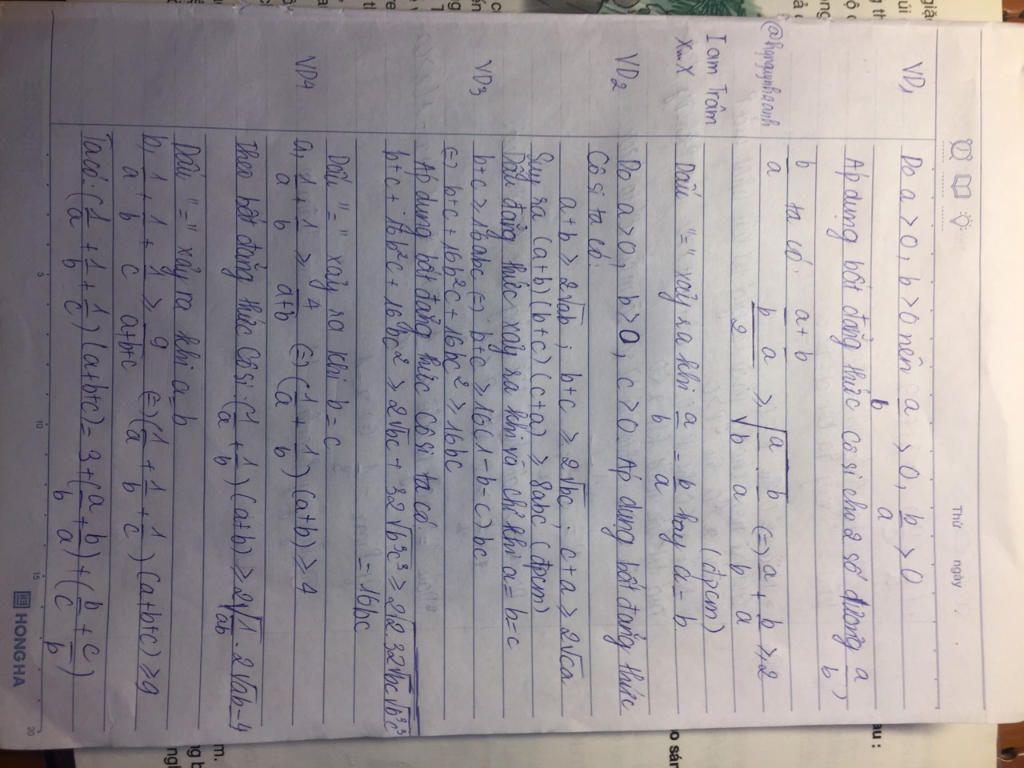 Thứ ngày
VD1 Do a > 0, b > 0 nên a/b > 0, b/a > 0
Áp dụng bất đẳng thức Cosi cho 2 số dương a/b,
b/a ta có:
(a/b + b/a)/2 ≥ √(a/b . b/a) (=) a/b + b/a ≥ 2
(đpcm)
Dấu "=" xảy ra khi a/b = b/a hay a = b
@hanquynhranh
I am Trâm
XmX
VD2 Do a > 0, b > 0, c > 0. Áp dụng bất đẳng thức
Cô si ta có:
a+b ≥ 2√ab ; b+c ≥ 2√bc ; c+a ≥ 2√ca
Suy ra (a+b)(b+c)(c+a) ≥ 8abc (đpcm)
Dấu đẳng thức xảy ra khi và chỉ khi a=b=c
VD3 b+c ≥ 16abc (=) b+c ≥ 16(1-b-c)bc
(=) b+c + 16b²c + 16bc² ≥ 16bc
Áp dụng bất đẳng thức Cosi ta có:
b+c + 16b²c + 16bc² ≥ 2√bc + 32√b³c³ ≥ 2√2.32√bc√b³c³
= 16bc
Dấu "=" xảy ra khi b = c
VD4 a, 1/a + 1/b ≥ 4/(a+b) (=) (1/a + 1/b)(a+b) ≥ 4
Theo bất đẳng thức Côsi: (1/a + 1/b)(a+b) ≥ 2√(1/ab) . 2√ab = 4
Dấu "=" xảy ra khi a=b
b, 1/a + 1/b + 1/c ≥ 9/(a+b+c) (=) (1/a + 1/b + 1/c)(a+b+c) ≥ 9
Ta có: (1/a + 1/b + 1/c)(a+b+c) = 3 + (a/b + b/a) + (b/c + c/b)
5 10 15 20
HONG HA